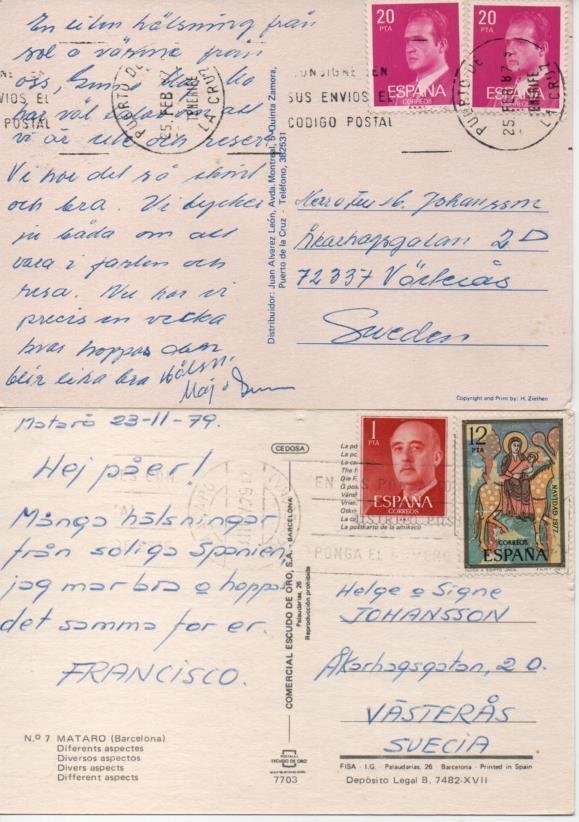 En liten hälsning från
sol o värme från
oss,
har väl att
vi är ute och reser
Vi har det så skönt
och bra. Vi tycker
ju båda om att
vara i farten och
resa. Nu har vi
precis en vecka
kvar hoppas den
blir lika bra Hälsn.
Maj o
20
PTA
ESPAÑA
CORREOS
20
PTA
ESPAÑA
CORREOS
PUERTO DE LA CRUZ
25 FEB 87
TENERIFE
CONSIGNE EN
SUS ENVIOS EL
CODIGO POSTAL
PUERTO DE LA CRUZ
25 87
TENERIFE
VIOS EL
POSTAL
Distribuidor: Juan Alvarez León, Avda. Montreal, 5-Quinta Zamora,
Puerto de la Cruz - Teléfono, 382531
Johansson
2 D
72337 Västerås
Sweden
Copyright and Print by: H. Ziethen
Mataró 23-11-79.
Hej på er!
Många hälsningar
från soliga Spanien,
jag mar bra o hoppas
det samma for er.
FRANCISCO.
N.º 7 MATARO (Barcelona)
Diferents aspectes
Diversos aspectos
Divers aspects
Different aspects
CEDOSA
COMERCIAL ESCUDO DE ORO, S.A. - BARCELONA
Palaudarias, 26
Reproducción prohibida
ESCUDO DE ORO
7703
1
PTA
ESPAÑA
CORREOS
12
PTA
NAVIDAD 1977
CORREOS
ESPAÑA
PONGA EL NUMERO
Helge o Signe
JOHANSSON
Åkarhagsgatan, 2 D.
VÄSTERÅS
SUECIA
FISA - I.G. - Palaudarias, 26 - Barcelona - Printed in Spain
Depósito Legal B. 7482-XVII